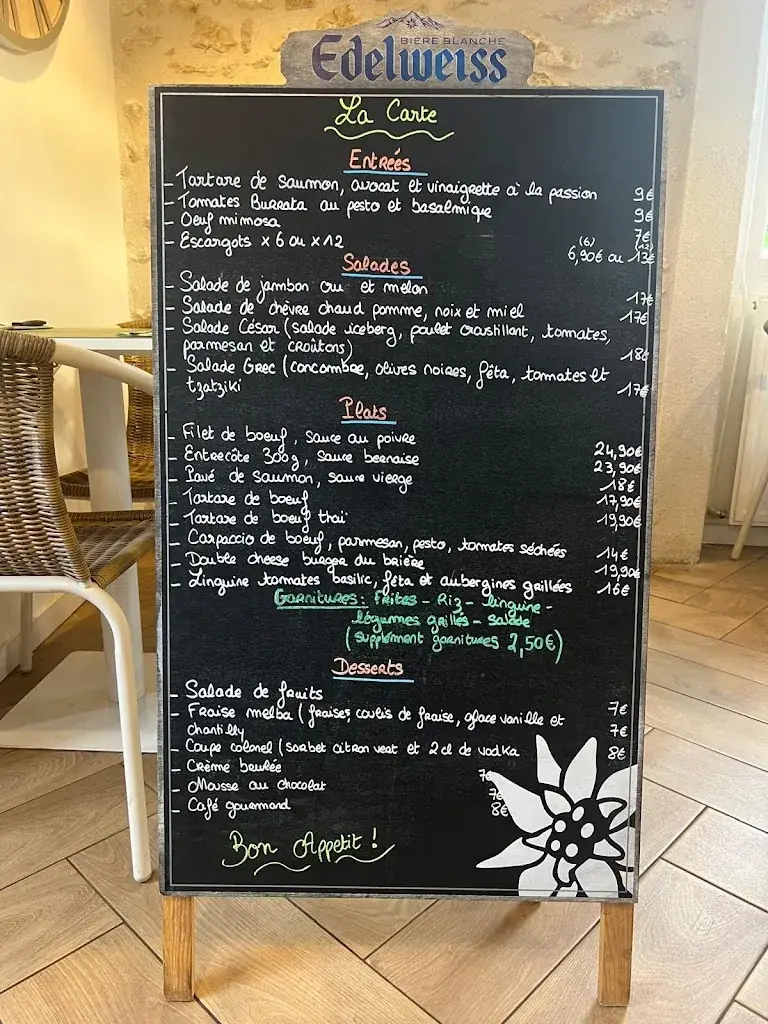 BIÈRE BLANCHE
Edelweiss
La Carte
Entrées
- Tartare de saumon, avocat et vinaigrette à la passion 9€
- Tomates Burrata au pesto et basalmique 9€
- Oeuf mimosa 7€
- Escargots x 6 ou x 12 (6) 6,90€ ou (12) 13€
Salades
- Salade de jambon cru et melon 17€
- Salade de chèvre chaud pomme, noix et miel 17€
- Salade César (salade iceberg, poulet croustillant, tomates,
parmesan et croûtons) 18€
- Salade Grec (concombre, olives noires, fêta, tomates et
tzatziki 17€
Plats
- Filet de boeuf, sauce au poivre 24,90€
- Entrecôte 300g, sauce bernaise 23,90€
- Pavé de saumon, sauce vierge 18€
- Tartare de boeuf 17,90€
- Tartare de boeuf thaï 19,90€
- Carpaccio de boeuf, parmesan, pesto, tomates séchées 14€
- Double cheese burger du brière 19,90€
- Linguine tomates basilic, fêta et aubergines grillées 16€
Garnitures : Frites - Riz - linguine -
légumes grillés - salade
(supplément garnitures 2,50€)
Desserts
- Salade de fruits 7€
- Fraise melba (fraises, coulis de fraise, glace vanille et
chantilly 7€
- Coupe colonel (sorbet citron vert et 2cl de vodka 8€
- Crème brulée 7€
- Mousse au chocolat 7€
- Café gourmand 8€
Bon Appetit !